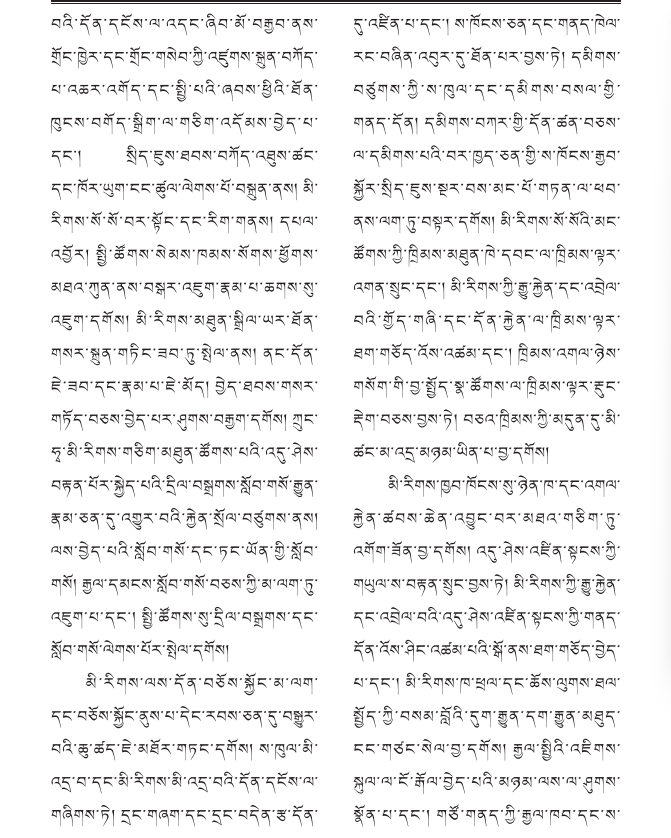 བའི་དོན་དངོས་ལ་འདང་ཞིབ་མོ་བརྒྱབ་ནས་
གྲོང་ཁྱེར་དང་གྲོང་གསེབ་ཀྱི་འཛུགས་སྐྲུན་བཀོད་
པ་འཆར་འགོད་དང་སྤྱི་པའི་ཞབས་ཕྱིའི་ཐོན་
ཁུངས་བགོད་སྒྲིག་ལ་གཅིག་འདོམས་བྱེད་པ་
དང་། སྲིད་ཇུས་ཐབས་བཀོད་འཐུས་ཚང་
དང་ཁོར་ཡུག་ངང་ཚུལ་ལེགས་པོ་བསྐྲུན་ནས། མི་
རིགས་སོ་སོ་བར་སྟོང་དང་རིག་གནས། དཔལ་
འབྱོར། སྤྱི་ཚོགས་སེམས་ཁམས་སོགས་ཕྱོགས་
མཐའ་ཀུན་ནས་བསྒར་འཇུག་རྣམ་པ་ཆགས་སུ་
འཇུག་དགོས། མི་རིགས་མཐུན་སྒྲིལ་ཡར་ཐོན་
གསར་སྐྲུན་གཏིང་ཟབ་ཏུ་སྤེལ་ནས། ནང་དོན་
ཇེ་ཟབ་དང་རྣམ་པ་ཇེ་མོད། བྱེད་ཐབས་གསར་
གཏོད་བཅས་བྱེད་པར་ཤུགས་བརྒྱག་དགོས། ཀྲུང་
ཧྭ་མི་རིགས་གཅིག་མཐུན་ཚོགས་པའི་འདུ་ཤེས་
བརྟན་པོར་སྐྱེད་པའི་དྲིལ་བསྒྲགས་སློབ་གསོ་རྒྱུན་
རྣམ་ཅན་དུ་འགྱུར་བའི་རྐྱེན་སྲོལ་བཙུགས་ནས།
ལས་བྱེད་པའི་སློབ་གསོ་དང་ཏང་ཡོན་གྱི་སློབ་
གསོ། རྒྱལ་དམངས་སློབ་གསོ་བཅས་ཀྱི་མ་ལག་ཏུ་
འཇུག་པ་དང་། སྤྱི་ཚོགས་སུ་དྲིལ་བསྒྲགས་དང་
སློབ་གསོ་ལེགས་པོར་སྤེལ་དགོས།
མི་རིགས་ལས་དོན་བཅོས་སྐྱོང་མ་ལག་
དང་བཅོས་སྐྱོང་ནུས་པ་དེང་རབས་ཅན་དུ་བསྒྱུར་
བའི་ཆུ་ཚད་ཇེ་མཐོར་གཏང་དགོས། ས་ཁུལ་མི་
འདྲ་བ་དང་མི་རིགས་མི་འདྲ་བའི་དོན་དངོས་ལ་
གཞིགས་ཏེ། དྲང་གཞག་དང་དྲང་བདེན་རྩ་དོན་
དུ་འཛིན་པ་དང་། ས་ཁོངས་ཅན་དང་གནད་ཁེལ་
རང་བཞིན་འབུར་དུ་ཐོན་པར་བྱས་ཏེ། དམིགས་
བཙུགས་ཀྱི་ས་ཁུལ་དང་དམིགས་བསལ་གྱི་
གནད་དོན། དམིགས་བཀར་གྱི་དོན་ཚན་བཅས་
ལ་དམིགས་པའི་བར་ཁྱད་ཅན་གྱི་ས་ཁོངས་རྒྱབ་
སྐྱོར་སྲིད་ཇུས་སྔར་བས་མང་པོ་གཏན་ལ་ཕབ་
ནས་ལག་ཏུ་བསྟར་དགོས། མི་རིགས་སོ་སོའི་མང་
ཚོགས་ཀྱི་ཁྲིམས་མཐུན་ཁེ་དབང་ལ་ཁྲིམས་ལྟར་
འགན་སྲུང་དང་། མི་རིགས་ཀྱི་རྒྱུ་རྐྱེན་དང་འབྲེལ་
བའི་གྱོད་གཞི་དང་དོན་རྐྱེན་ལ་ཁྲིམས་ལྟར་
ཐག་གཅོད་འོས་འཚམ་དང་། ཁྲིམས་འགལ་ཉེས་
གསོག་གི་བྱ་སྤྱོད་སྣ་ཚོགས་ལ་ཁྲིམས་ལྟར་རྡུང་
རྡེག་བཅས་བྱས་ཏེ། བཅའ་ཁྲིམས་ཀྱི་མདུན་དུ་མི་
ཚང་མ་འདྲ་མཉམ་ཡིན་པ་བྱ་དགོས།
མི་རིགས་ཁྱབ་ཁོངས་སུ་ཉེན་ཁ་དང་འགལ་
རྐྱེན་ཚབས་ཆེན་འབྱུང་བར་མཐའ་གཅིག་ཏུ་
འགོག་ཟོན་བྱ་དགོས། འདུ་ཤེས་འཛིན་སྟངས་ཀྱི་
གཡུལ་ས་བརྟན་སྲུང་བྱས་ཏེ། མི་རིགས་ཀྱི་རྒྱུ་རྐྱེན་
དང་འབྲེལ་བའི་འདུ་ཤེས་འཛིན་སྟངས་ཀྱི་གནད་
དོན་འོས་ཤིང་འཚམ་པའི་སྒོ་ནས་ཐག་གཅོད་བྱེད་
པ་དང་། མི་རིགས་ཁ་ཕྲལ་དང་ཆོས་ལུགས་ཐལ་
སྤྱོད་ཀྱི་བསམ་བློའི་དུག་རྒྱུན་དག་རྒྱུན་མཐུད་
ངང་གཙང་སེལ་བྱ་དགོས། རྒྱལ་སྤྱིའི་འཇིགས་
སྐུལ་ལ་ངོ་རྒོལ་བྱེད་པའི་མཉམ་ལས་ལ་ཤུགས་
སྣོན་པ་དང་། གཙོ་གནད་ཀྱི་རྒྱལ་ཁབ་དང་ས་